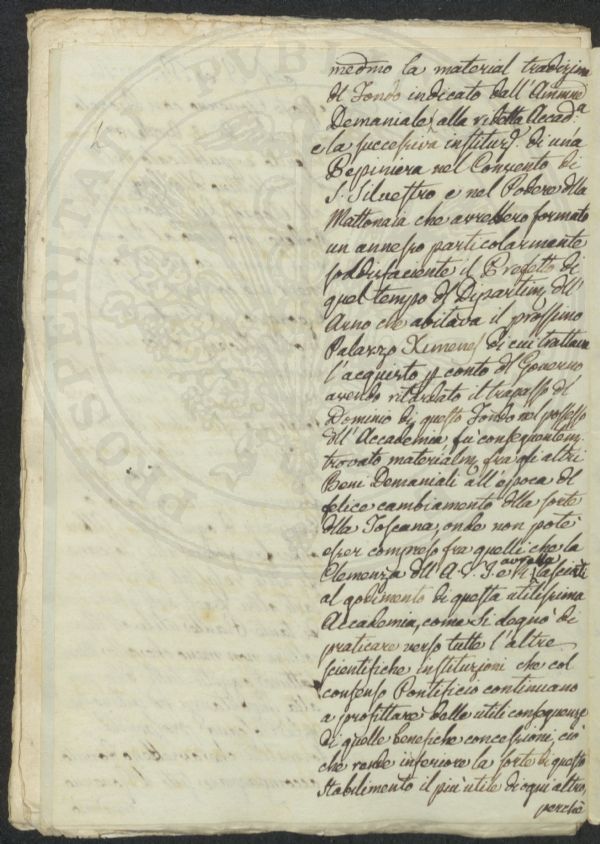 PROSPERITATI PUBL
medmo la material tradizione
del Fondo indicato dall' Ammne
Demaniale alla ridetta Accada
e la successiva instituze. di una
Pepiniera nel Convento di
S. Silvestro e nel Podere della
Mattonaia che avrebbero formato
un annesso particolarmente
soddisfaciente il Progetto di
quel tempo del Dipartim dell'
Arno che abitava il prossimo
Palazzo Ximenes di cui trattava
l'acquisto p conto del Governo
avendo ritardato il trapasso del
Dominio di questo Fondo nel possesso
dell' Accademia, fù conseguentem.
trovato materialm. fra gli altri
Beni Demaniali all'epoca del
felice cambiamento della sorte
della Toscana, onde non potè
esser compreso fra quelli che la
Clemenza dell' A. V. I. e R. avrebbe lasciati
al godimento di questa utilissima
Accademia, come si degnò di
praticare verso tutte l'altre
scientifiche instituzioni che col
consenso Pontificio continuano
a profittare delle utili conseguenze
di quelle benefiche concessioni, ciò
che rende inferiore la sorte di questo
Stabilimento il più utile di ogni altro,
perchè